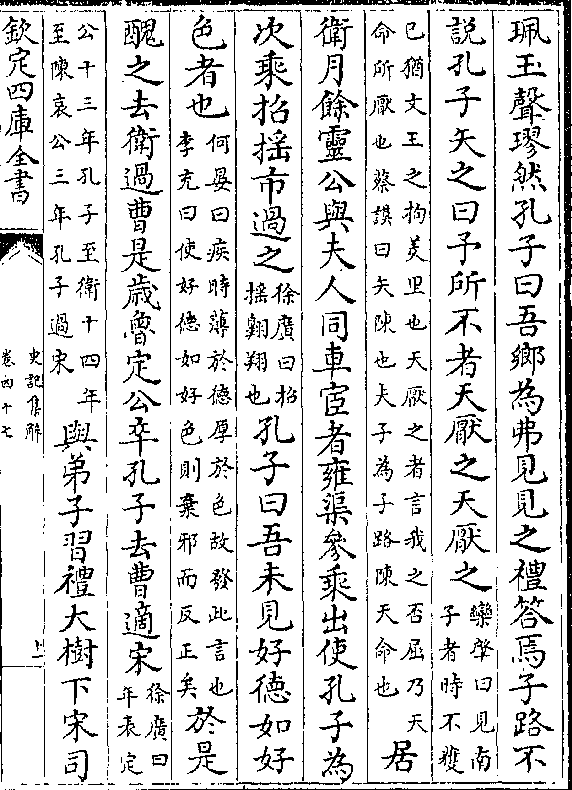 珮玉聲璆然孔子曰吾鄉為弗見見之禮答焉子路不
說孔子矢之曰予所不者天厭之天厭之欒肇曰見南子者時不獲
已猶文王之拘羑里也天厭之者言我之否屈乃天命所厭也蔡謨曰矢陳也夫子為子路陳天命也居
衛月餘靈公與夫人同車宦者雍渠參乘出使孔子為
次乘招搖市過之徐廣曰招搖翱翔也孔子曰吾未見好德如好
色者也何晏曰疾時薄於德厚於色故發此言也李充曰使好德如好色則棄邪而反正矣於是
醜之去衛過曹是歲魯定公卒孔子去曹適宋徐廣曰年表定
公十三年孔子至衛十四年至陳哀公三年孔子過宋與弟子習禮大樹下宋司
欽定四庫全書
史記集解
卷四十七